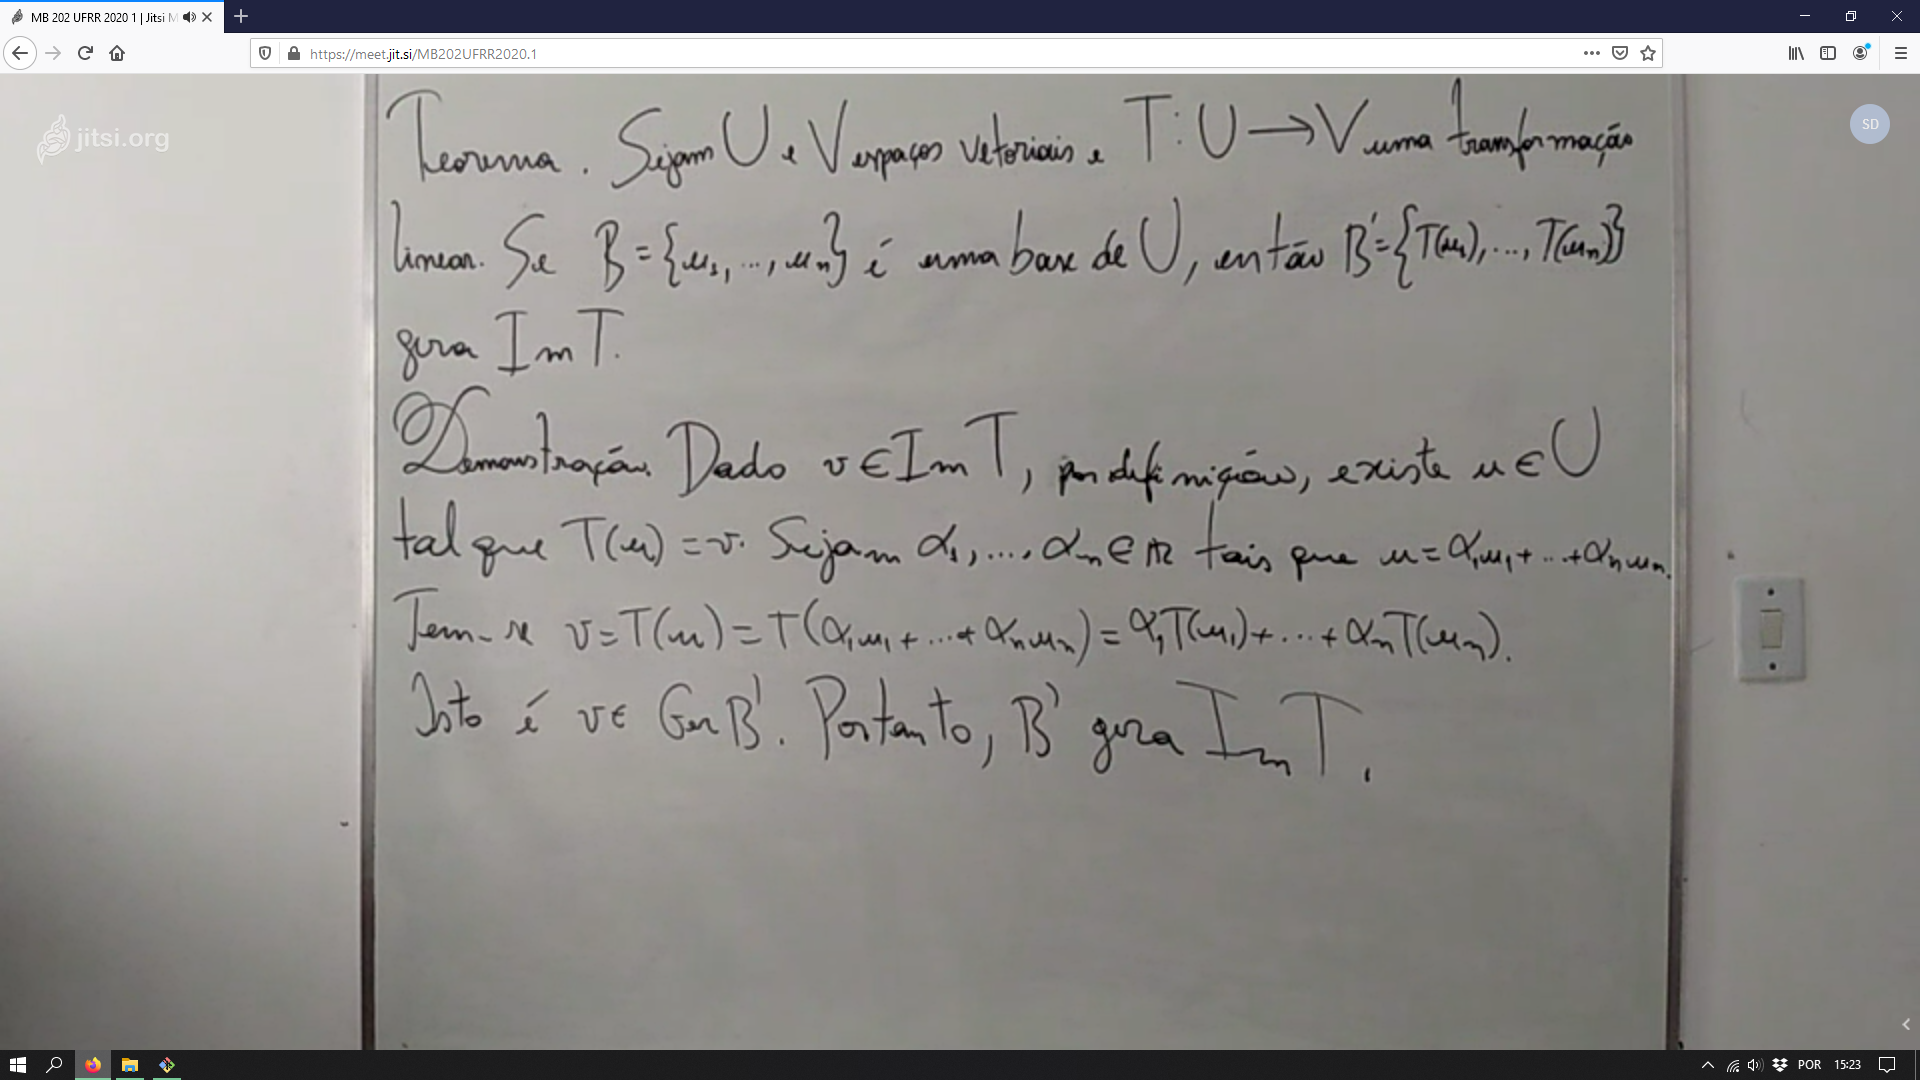 MB 202 UFRR 2020 1 | Jitsi M
https://meet.jit.si/MB202UFRR2020.1
jitsi.org
SD
Teorema. Sejam U e V espaços vetoriais e T: U → V uma transformação
linear. Se B = {u₁, ..., uₙ} é uma base de U, então B' = {T(u₁), ..., T(uₙ)}
gera Im T.
Demonstração. Dado v ∈ Im T, por definição, existe u ∈ U
tal que T(u) = v. Sejam α₁, ..., αₙ ∈ ℝ tais que u = α₁u₁ + ... + αₙuₙ.
Tem-se v = T(u) = T(α₁u₁ + ... + αₙuₙ) = α₁T(u₁) + ... + αₙT(uₙ).
Isto é v ∈ Ger B'. Portanto, B' gera Im T.
POR 15:23